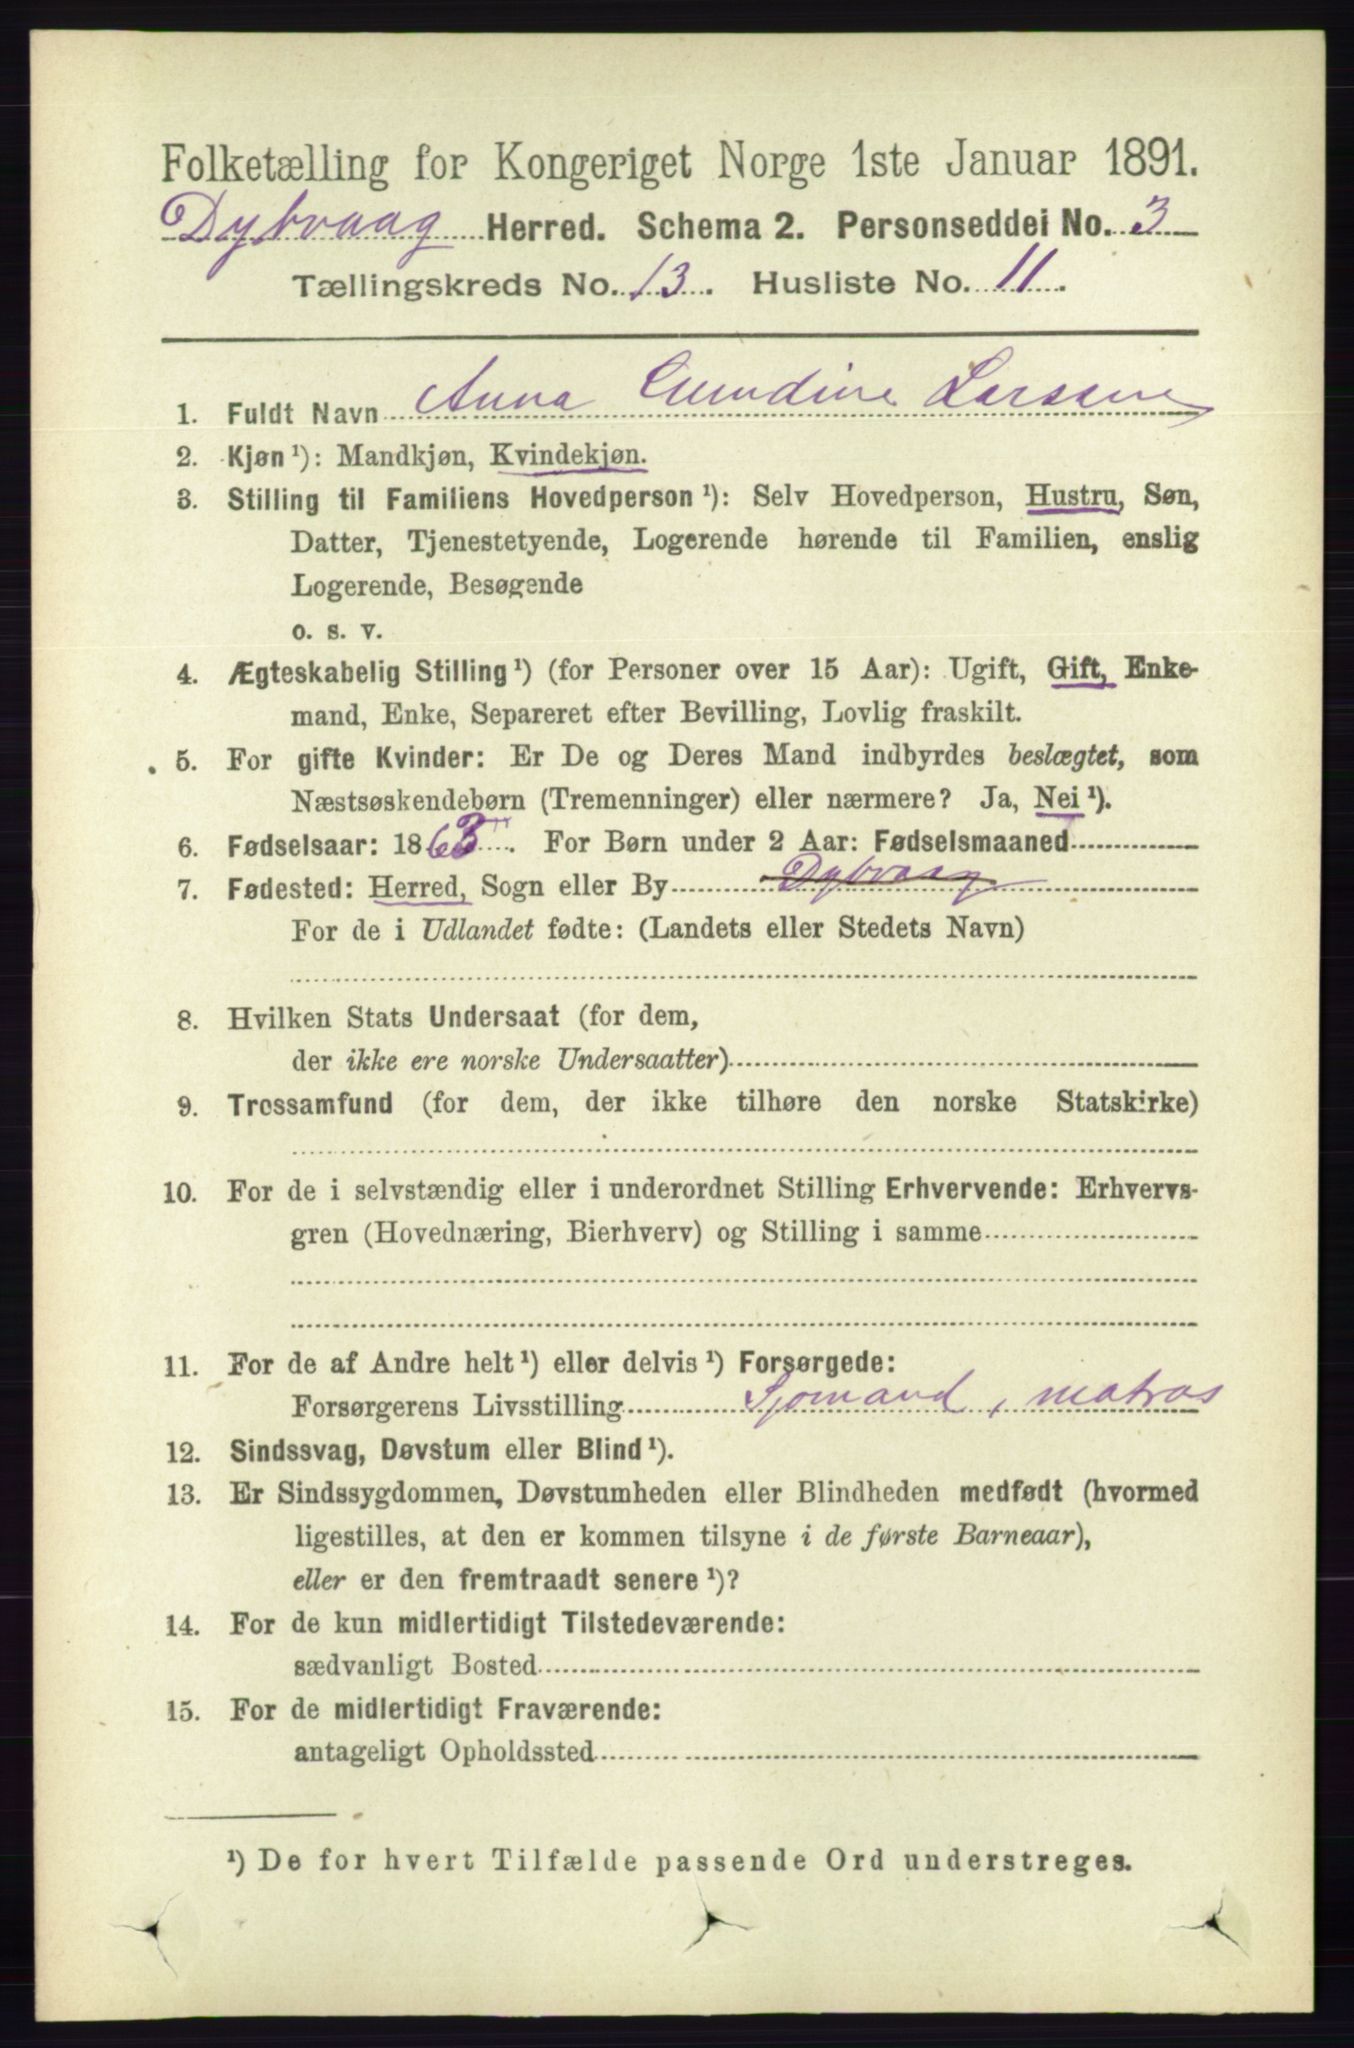 Folketælling for Kongeriget Norge 1ste Januar 1891.
Dybvaag Herred. Schema 2. Personseddel No. 3
Tællingskreds No. 13. Husliste No. 11.
1. Fuldt Navn Anna Gundine Larsen
2. Kjøn ¹): Mandkjøn, Kvindekjøn.
3. Stilling til Familiens Hovedperson ¹): Selv Hovedperson, Hustru, Søn,
Datter, Tjenestetyende, Logerende hørende til Familien, enslig
Logerende, Besøgende
o. s. v.
4. Ægteskabelig Stilling ¹) (for Personer over 15 Aar): Ugift, Gift, Enke-
mand, Enke, Separeret efter Bevilling, Lovlig fraskilt.
5. For gifte Kvinder: Er De og Deres Mand indbyrdes beslægtet, som
Næstsøskendebørn (Tremenninger) eller nærmere? Ja, Nei ¹).
6. Fødselsaar: 1863. For Børn under 2 Aar: Fødselsmaaned
7. Fødested: Herred, Sogn eller By Dybvaag
For de i Udlandet fødte: (Landets eller Stedets Navn)
8. Hvilken Stats Undersaat (for dem,
der ikke ere norske Undersaatter)
9. Trossamfund (for dem, der ikke tilhøre den norske Statskirke)
10. For de i selvstændig eller i underordnet Stilling Erhvervende: Erhvervs-
gren (Hovednæring, Bierhverv) og Stilling i samme
11. For de af Andre helt ¹) eller delvis ¹) Forsørgede:
Forsørgerens Livsstilling Sjomand, matros
12. Sindssvag, Døvstum eller Blind ¹).
13. Er Sindssygdommen, Døvstumheden eller Blindheden medfødt (hvormed
ligestilles, at den er kommen tilsyne i de første Barneaar),
eller er den fremtraadt senere ¹)?
14. For de kun midlertidigt Tilstedeværende:
sædvanligt Bosted
15. For de midlertidigt Fraværende:
antageligt Opholdssted
¹) De for hvert Tilfælde passende Ord understreges.